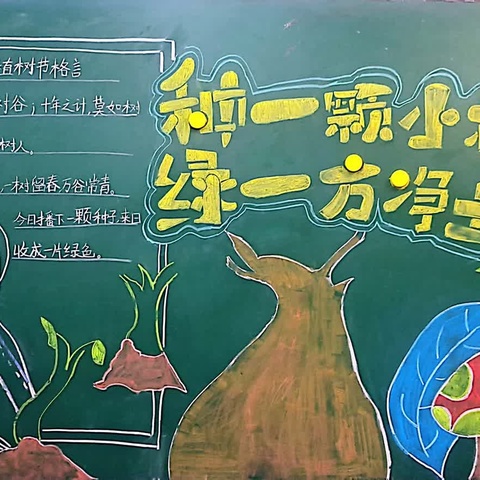 植树节格言
树谷；十年之计，莫如树
树人。
一树留春，万谷常青。
今日播下一颗种子，来日
收成一片绿色。
种一颗小
绿一方净土